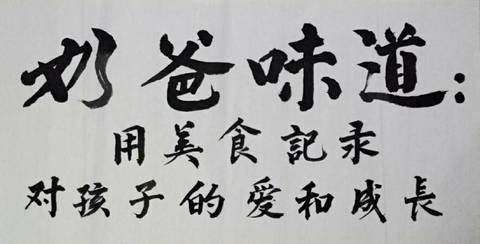 奶爸味道:
用美食記录
对孩子的爱和成長